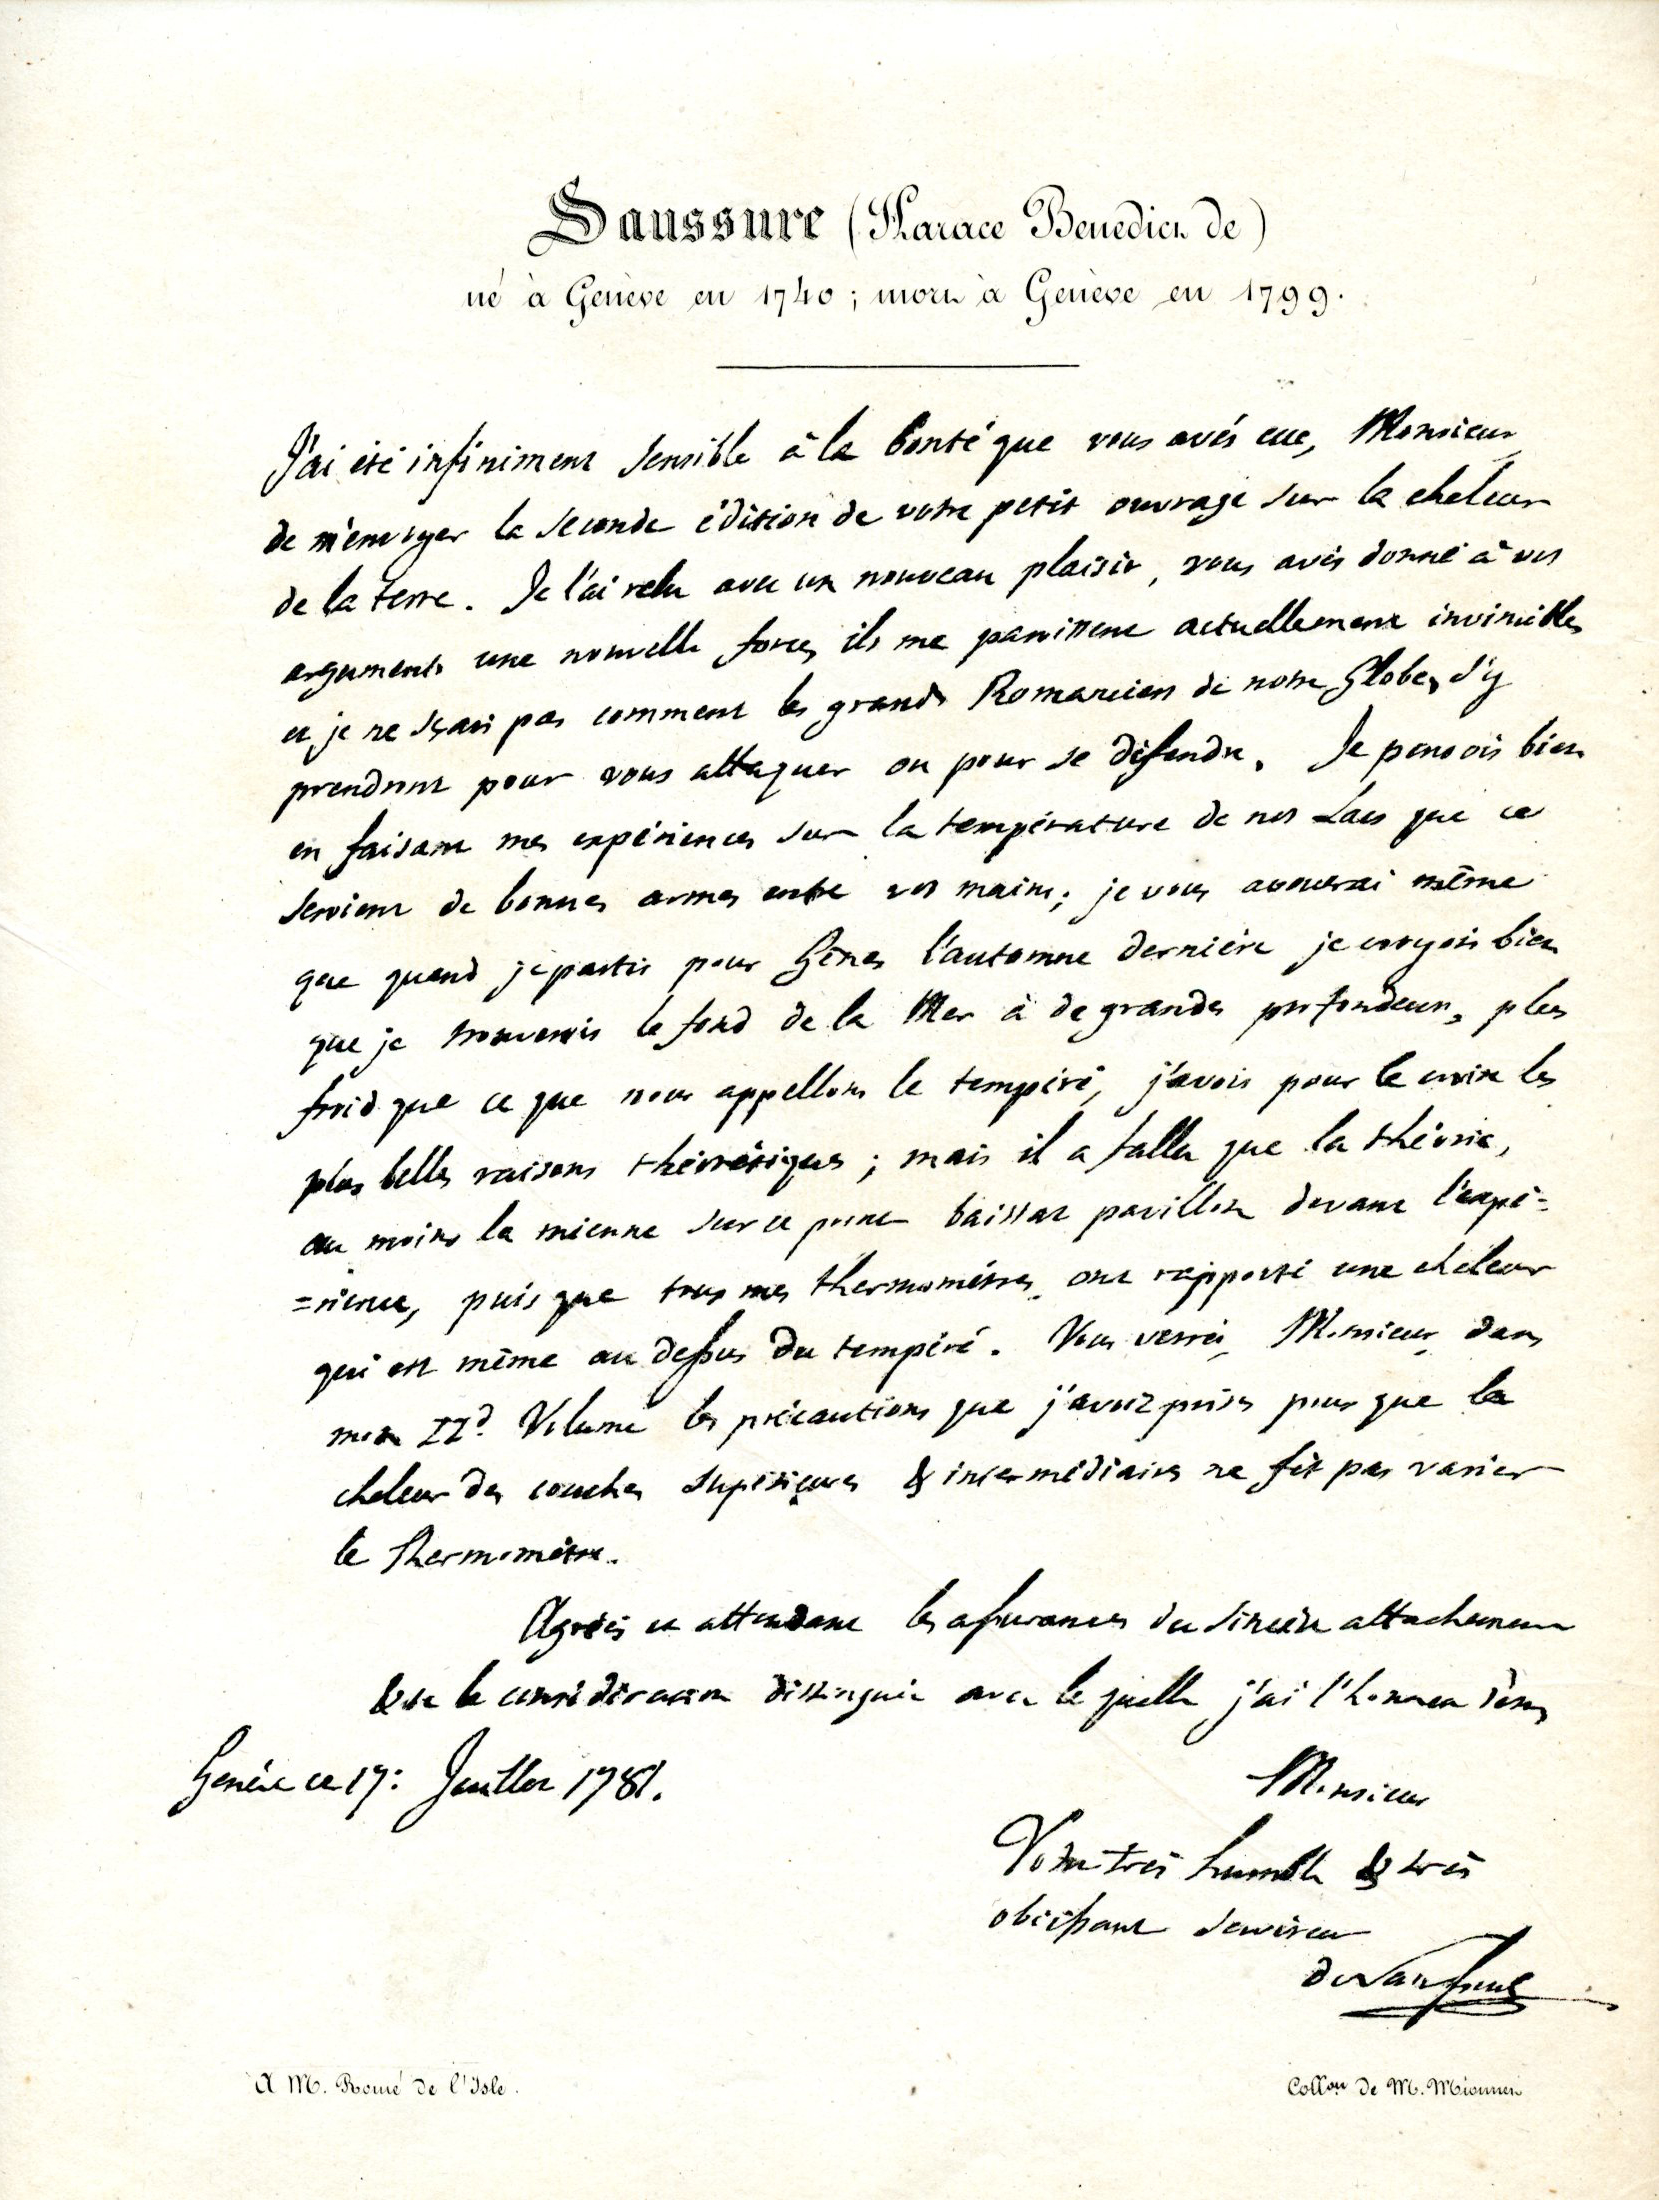 Saussure (Harace Benedict de)
né à Genève en 1740 ; mort à Genève en 1799.
J'ai été infiniment sensible à la bonté que vous avés eue, Monsieur,
de m'envoyer la seconde édition de votre petit ouvrage sur la chaleur
de la terre. Je l'ai relu avec un nouveau plaisir, vous avés donné à vos
arguments une nouvelle force, ils me paroissent actuellement invincibles
et je ne sçais pas comment les grands Romanciers de notre Globe, s'y
prendront pour vous attaquer ou pour se défendre. Je pensois bien
en faisant mes expériences sur la température de nos Lacs que ce
seroient de bonnes armes entre vos mains; je vous avouerai même
que quand je partis pour Gênes l'automne dernière je croyois bien
que je trouverois le fond de la Mer à de grandes profondeurs, plus
froid que ce que nous appellons le tempéré, j'avois pour le croire les
plus belles raisons théorétiques ; mais il a fallu que la théorie,
au moins la mienne sur ce point baissat pavillon devant l'expé=
=rience, puisque tous mes thermomètres ont rapporté une chaleur
qui est même au dessus du tempéré. Vous verrés, Monsieur, dans
mon IId. Volume les précautions que j'avois prises pour que la
chaleur des couches supérieures & intermédiaires ne fit pas varier
le thermomètre.
Agréés en attendant les assurances du sincère attachement
& de la considération distinguée avec laquelle j'ai l'honneur d'être
Genève ce 17: Juillet 1781.
Monsieur
Votre très humble & très
obéissant serviteur
de Saussure
A M. Romé de l'Isle.
Collon de M. Mionnet